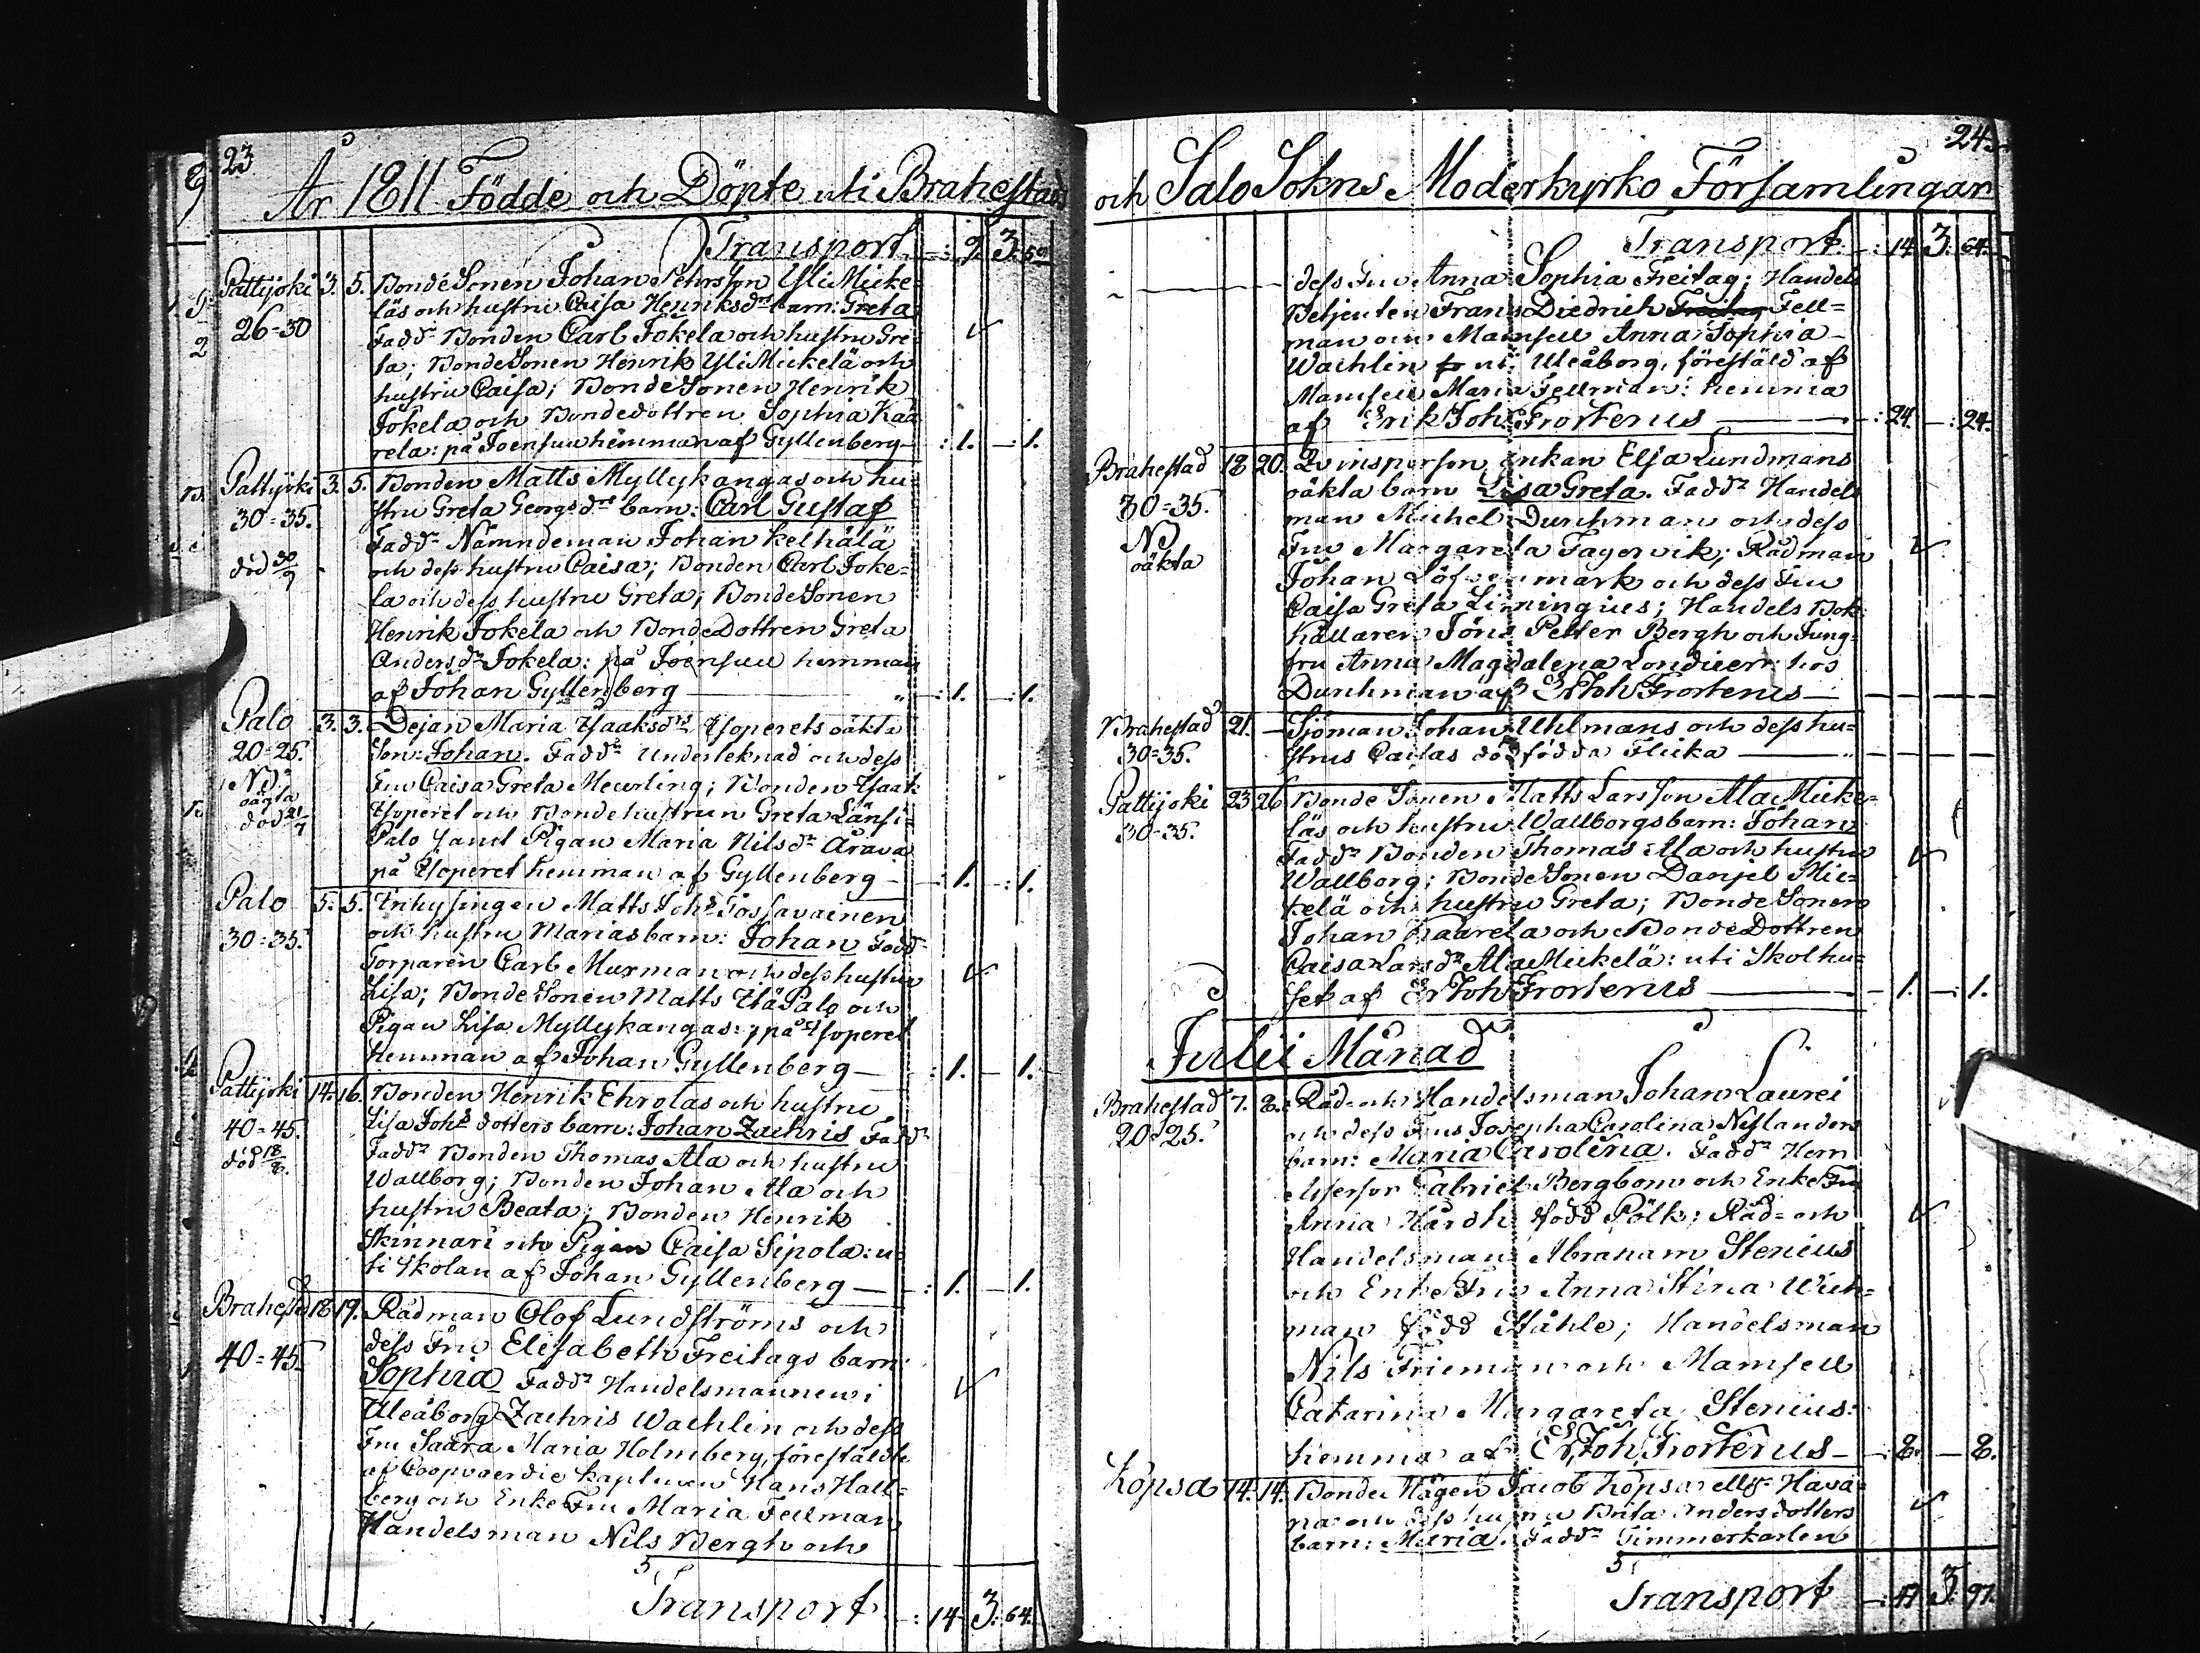 23
År 1811 Födde och Döpte uti Brahestads
Transport -: 9. 3. 59
Pattijoki 3. 5. BondeSonen Johan Pehrsson YliMicke=
läs och hustru Caisa Henriksdrs barn: Greta
26=30 Faddr Bonden Carl Jokela och hustru Gre
ta; BondeSonen Henrik YliMickelä och
hustru Caisa; BondeSonen Henrik
Jokela och Bondedottren Sophia Kaa
rela: på Joensuu hemman af Gyllenberg -: 1. -: 1.
Pattijoki 3. 5. Bonden Matts Myllykangas och hu=
30=35. stru Greta Georgsdrs barn: Carl Gustaf
Faddr Nämndeman Johan Kelhälä
död 30/9 och dess hustru Caisa; Bonden Carl Joke=
la och dess hustru Greta; BondeSonen
Henrik Jokela och BondeDottren Greta
Andersdr Jokela: på Joensuu hemman
af Johan Gyllenberg -: 1. -: 1.
Palo 3. 3. Dejan Maria Ysaaksdrs Ysoperets oäkta
20=25. Son: Johan. Faddr Underteknad och dess
Nd. Fru Caisa Greta Meurling; Bonden Ysaak
oägta Ysoperet och Bondehustrun Greta Länsi=
död 21/7 Palo samt Pigan Maria Nilsdr Arava
på Ysoperet hemman af Gyllenberg -: 1. -: 1.
Palo 5. 5. Inhysingen Matts Johs Tossavainen
30=35. och hustru Marias barn: Johan Fadd
Torparen Carl Murman och dess hustru
Lisa; BondeSonen Matts YläPalo och
Pigan Lisa Myllykangas: på Ysoperet
hemman af Johan Gyllenberg -: 1. - 1.
Pattijoki 14. 16. Bonden Henrik Ehrolas och hustru
40=45. Lisa Johs dotters barn: Johan Zachris Faddr
död 18/8. Faddr Bonden Thomas Ala och hustru
Wallborg; Bonden Johan Ala och
hustru Beata; Bonden Henrik
Skinnari och Pigan Caisa Sipola: u=
ti Skolan af Johan Gyllenberg -: 1. - 1.
Brahestad 18. 19. Rådman Olof Lundströms och
40=45. dess Fru Elisabeth Freitags barn
Sophia Faddr Handelsmannen i
Uleåborg Zachris Wachlin och dess
Fru Saara Maria Holmberg, föreställde
af Coopvaerdie kaptenen Hans Hall=
berg och EnkeFru Maria Fellman
Handelsman Nils Bergh och
Transport -: 14. 3. 64.
24.
och Salo Sokns Moderkyrko Församlingar
Transport. -: 14. 3. 64.
dess Fru Anna Sophia Freitag; Handels
Betjenten Frans Diedrich Freitag Fell=
man och Mamsell Anna Sophia
Wachlin fr uti Uleåborg, föreställd af
Mamsell Maria Fellman: hemma
af Erik Joh: Frosterus -: 24. -: 24.
Brahestad 18 20. Qvinsperson enkan Elsa Lundmans
30=35. oäkta barn Lisa Greta. Faddr Handels
Nd man Michel Durchman och dess
oäkta Fru Margareta Fagervik; Rådman
Johan Löfvenmark och dess Fru
Caisa Greta Linningius; Handels Bok
hållaren Jöns Petter Bergh och Jung=
fru Anna Magdalena Londicer: hos
Durchman af ErJoh Frosterus
Brahestad 21. - Sjöman Johan Uhlmans och dess hu=
30=35. strus Caisas dödfödda Flicka
Pattijoki 23 26 Bonde Sonen Matts Larsson AlaMicke=
30=35. läs och hustru Wallborgs barn: Johan
Faddr Bonden Thomas Ala och hustru
Wallborg; BondeSonen Danjel Mic=
kelä och hustru Greta; BondeSonen
Johan Kaarela och BondeDottren
Caisa Larsdr AlaMickelä: uti Skolhu=
set af ErJoh Frosterus - 1. -: 1.
Julii Månad
Brahestad 7. 8. Råd- och Handelsman Johan Laurei
20=25. och dess Frus Josepha Carolina Nylanders
barn: Maria Carolina. Faddr Herr
Assessor Gabriel Bergbom och EnkeFru
Anna Hårdh född Pölk; Råd= och
Handelsman Abraham Stenius
och EnkeFru Anna Stina Wich=
man född Ståhle; Handelsman
Nils Frieman och Mamsell
Catarina Margareta Stenius:
hemma af ErJoh Frosterus -: 8. - 8.
Köpsa 14. 14. Bonde Mågen Jacob Köpsa ellr Hava
na och dess hustru Brita Anders dotters
barn: Maria. Faddr Timmerkarlen
Transport -: 47. 3. 97.